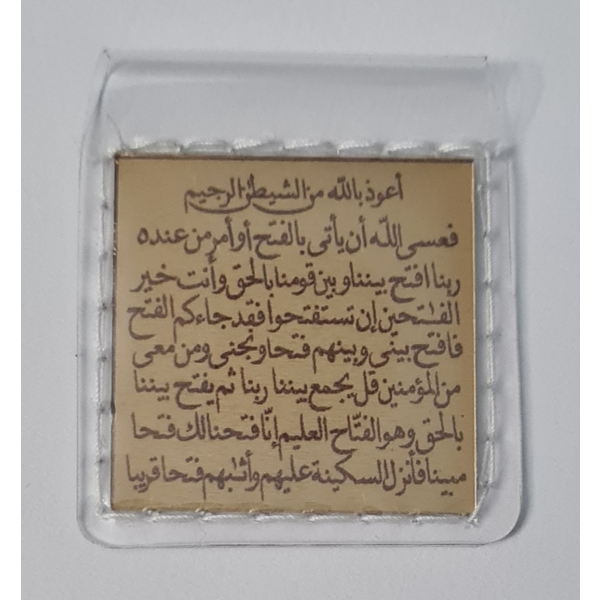 أعوذ بالله من الشيطن الرجيم
فعسى الله أن يأتى بالفتح أو أمر من عنده
ربنا افتح بيننا وبين قومنا بالحق وأنت خير
الفٰتحين إن تستفتحوا فقد جاءكم الفتح
فافتح بينى وبينهم فتحا ونجنى ومن معى
من المؤمنين قل يجمع بيننا ربنا ثم يفتح بيننا
بالحق وهو الفتّاح العليم إنّا فتحنا لك فتحا
مبينا فأنزل السكينة عليهم وأثٰبهم فتحا قريبا